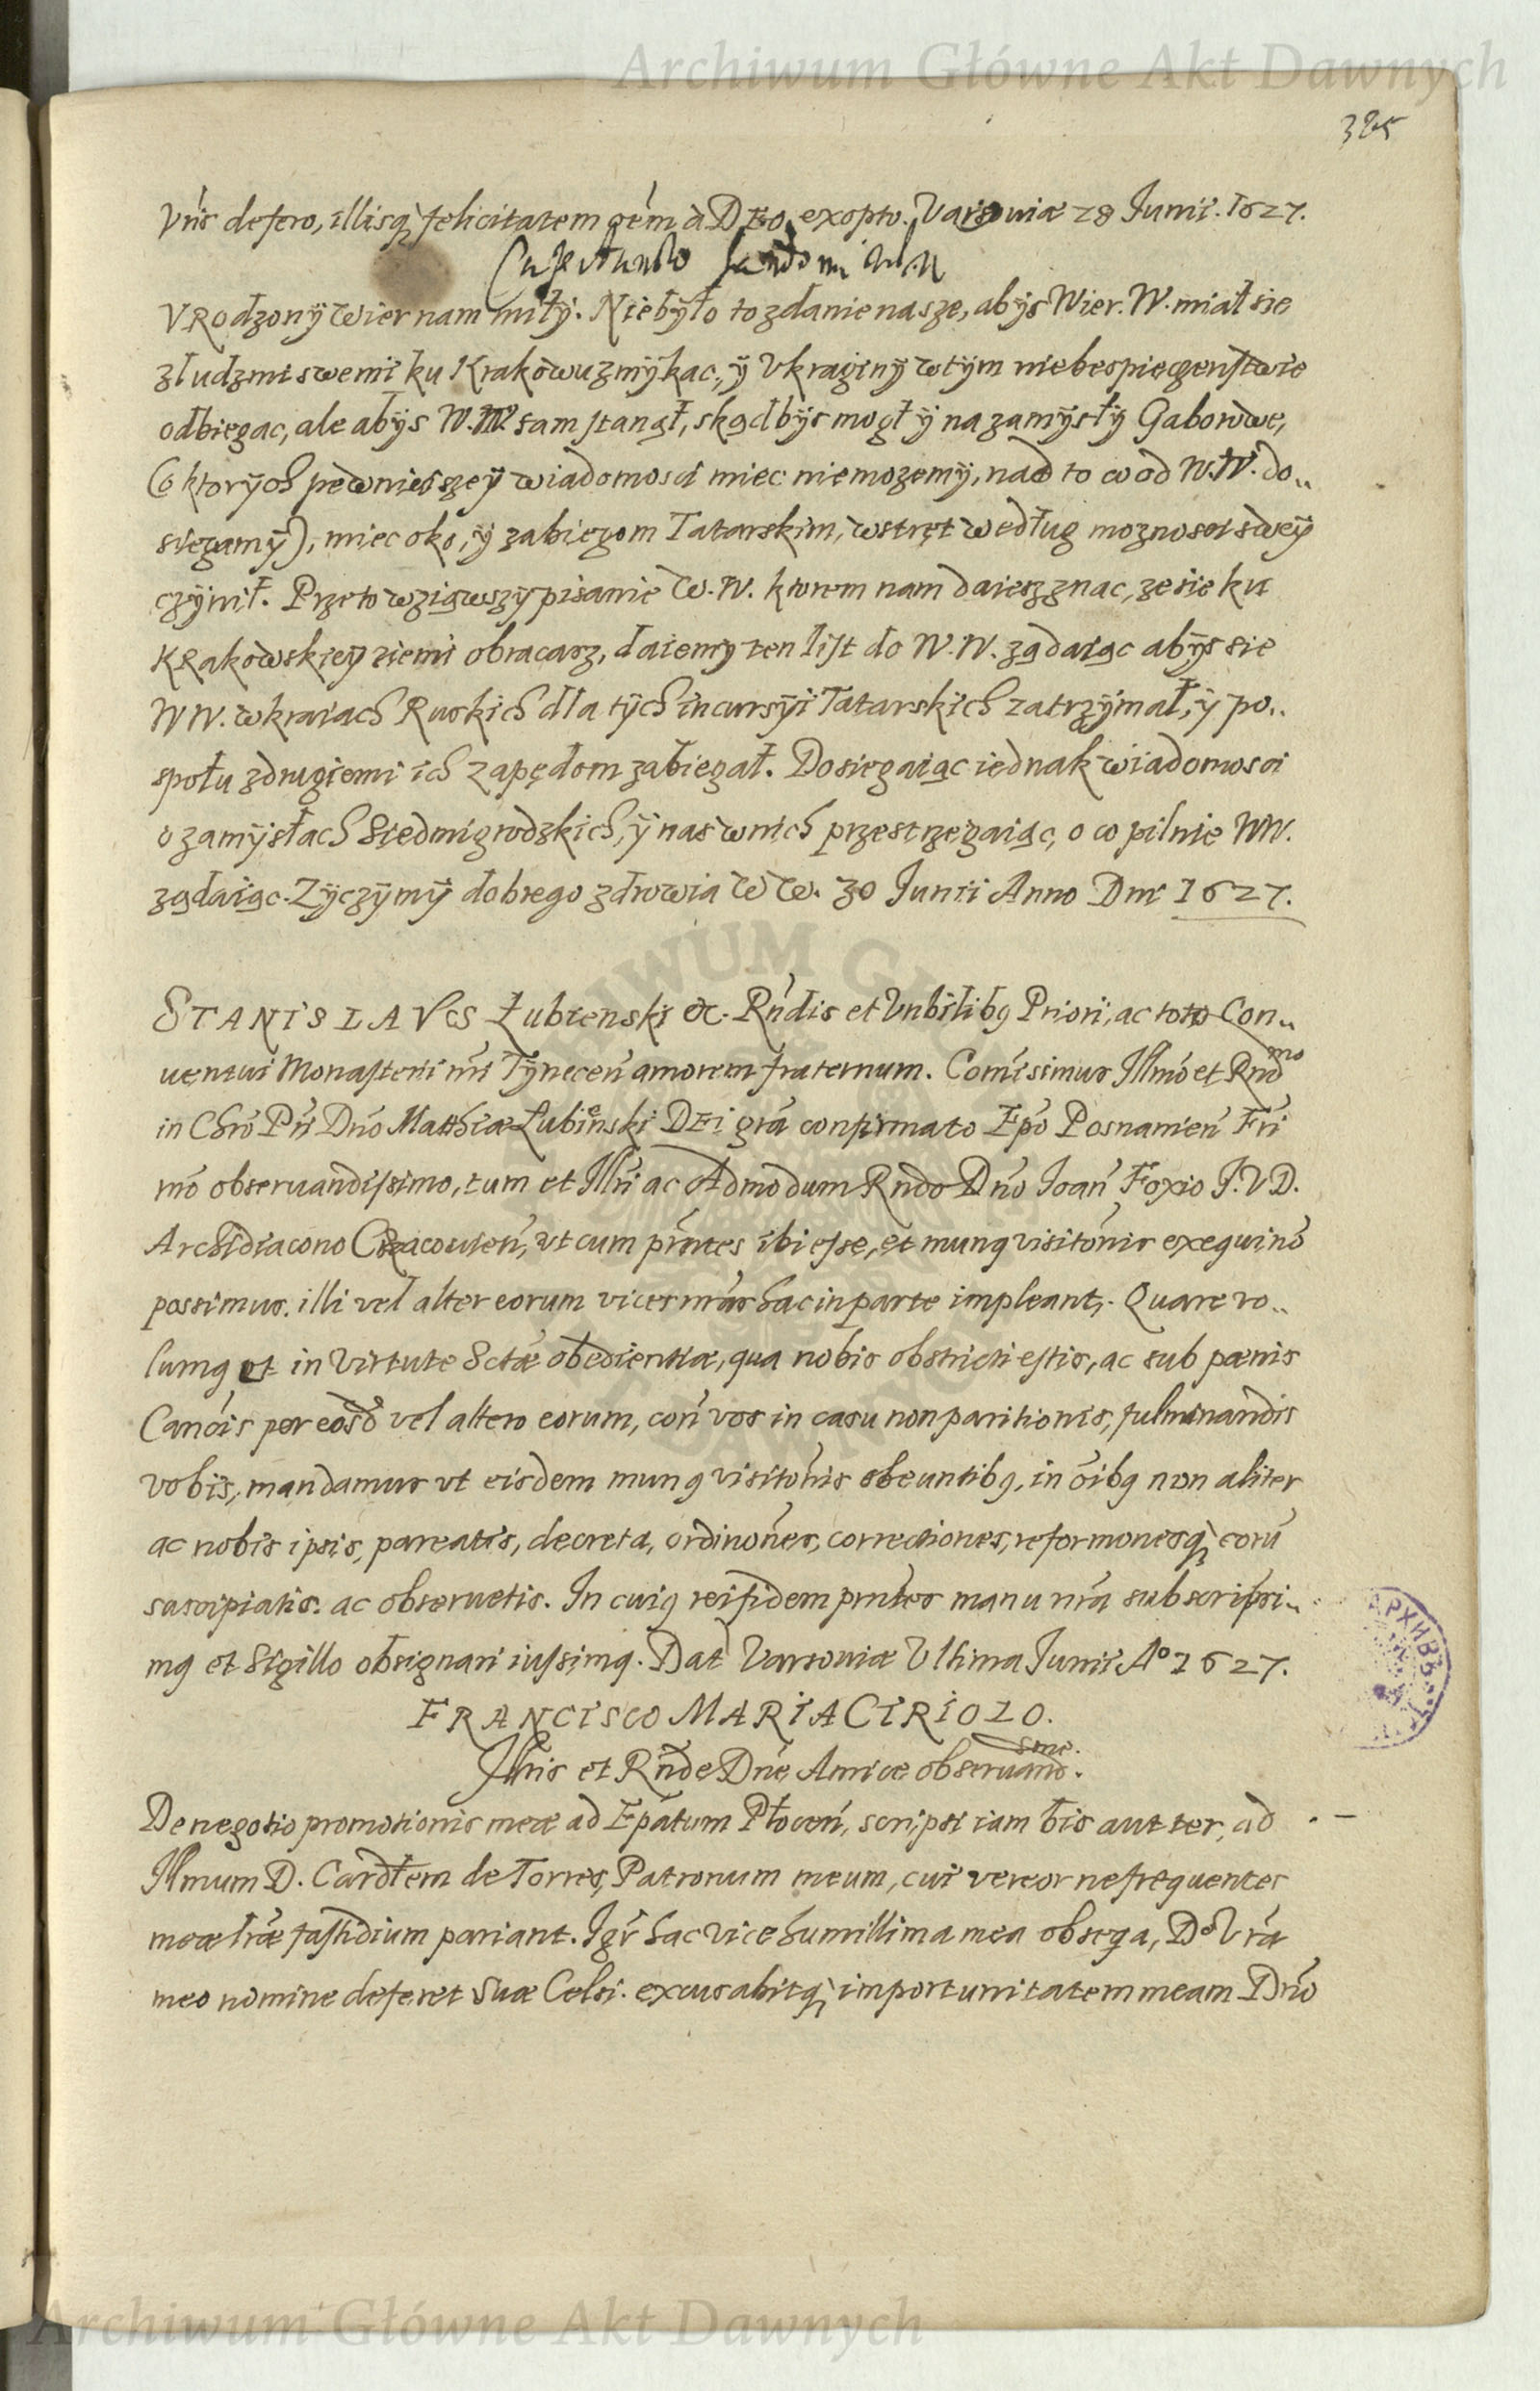 Archiwum Główne Akt Dawnych
385
Vr̃is defero, illisq; felicitatem oẽm à DEO exopto. Varsoviæ 28 Junii. 1627.
VRodzonÿ wier nam miłÿ. Niebÿło to zdanie nasze, abÿs Wier. W. miał sie
zludzmi swemi ku Krakowu zmÿkac, ÿ Vkrainÿ wtÿm niebespieczenstwie
odbiegac, ale abÿs W.W. sam stanął, skądbÿs mogł ÿ na zamÿsłÿ Gaborowe,
(o ktorÿch pewnieiszeÿ wiadomosci miec niemozemÿ, nad to co od W.W. do..
siegamÿ), miec oko, ÿ zabiegom Tatarskim, wstręt według moznosci sweÿ
czÿnił. Przeto wziąwszÿ pisanie W.W. ktorem nam daiesz znac, ze sie ku
KRakowskieÿ ziemi obracasz, daiemÿ ten list do W.W. ządaiąc abÿs sie
WW. wkraiach Ruskich dla tÿch incursÿi Tatarskich zatrzÿmał, ÿ po..
społu zdrugiemi ich zapędom zabiegał. Dosiegaiąc iednak wiadomosci
o zamÿsłach Siedmigrodzkich, ÿ nas wnich przestrzegaiąc, o co pilnie WW.
ządaiąc. Zÿczÿmÿ dobrego zdrowia WW. 30 Junii Anno Dni 1627.
STANISLAVS Łubienski &c. Rñdis et Vnbilibq Priori, ac toto Con..
uentui Monasterii nr̃i Tÿnecen̄ amorem fraternum. Comĩsimus Illmo et Rnd̃mo
in Chro Pri Dño Matthiæ Łubieñski DEi gr̃a confirmato Epõ Posnanien̄ Fr̃i
mõ obseruandissimo, tum et Illri ac Admodum Rndo Dño Joañ Foxio J.VD.
Archidiacono CRacouien̄, vt cum pr̃ntes ibi esse, et munq visitõnis exequi nõ
possimus. illi vel alter eorum vices nr̃as hac in parte impleant. Quare vo..
lumq et in virtute Sctæ obedientiæ, qua nobis obstricti estis, ac sub pœnis
Canõis per eosd̃ vel altero eorum, con̄ vos in casu non paritionis, fulminandis
vobis, mandamus vt eisdem munq visitõnis obeuntibq, in oĩbq non aliter
ac nobis ipsis, pareatis, decreta, ordinoñes, correctiones, reformonesq; eorũ
suscipiatis. ac obseruetis. In cuiq rei fidem prñtes manu nr̃a subscripsi..
mq et Sigillo obsignari iussimq. Dat Varsouiæ Vltima Junii Aº 1627.
FRANCISCO MARIA CIRIOLO.
Illris et Rñde Dñe Amice obseruand. sme.
De negotio promotionis meæ ad Epãtum Płocen̄, scripsi iam bis aut ter, ad
Illmum D. Cardlem de Torres, Patronum meum, cui vereor ne frequentes
meæ lr̃æ fastidium pariant. Igr̃ hac vice humillima mea obseqa, Dº Vr̃a
meo nomine deferet Suæ Celsi. excusabitq; importunitatem meam Dño
Archiwum Główne Akt Dawnych